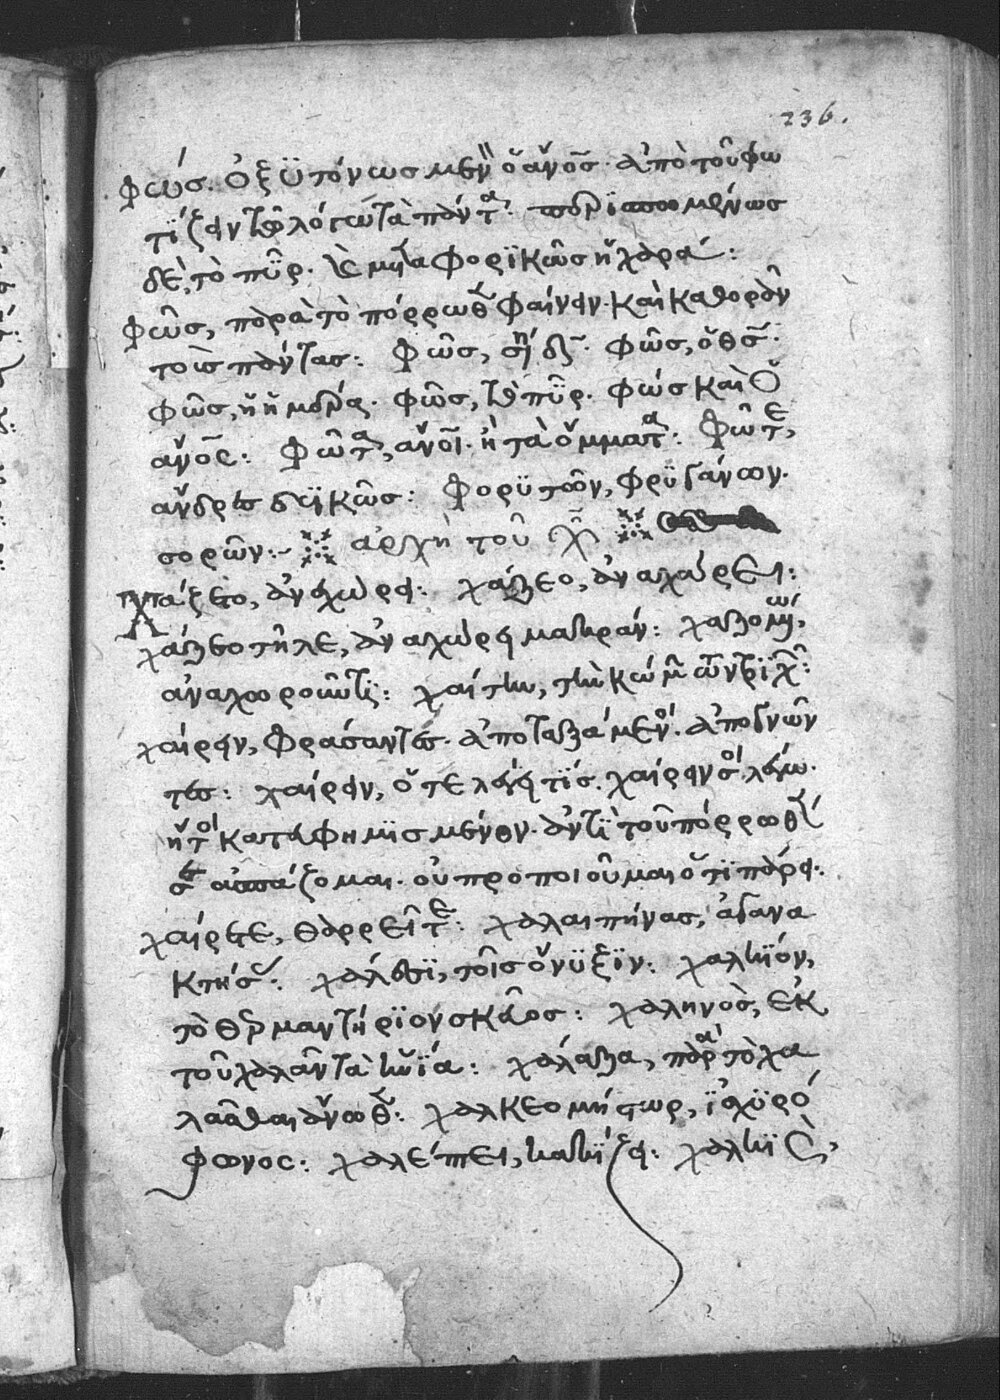 236.
φώς. Ὀξϋτόνως μὲν ὁ ἄνος. ἀπὸ τοῦ φω
τίζειν τῶ λόγω τὰ πάντα. περισπωμένως
δὲ, τὸ πῦρ. καὶ μεταφορϊκῶς ἡ χαρά:
φῶς, παρὰ τὸ πόρρωθεν φαίνειν. καὶ καθορᾶν
τοὺς πάντας: φῶς, φῶς, ὁ θς.
φῶς, ἡ ἡμέρα. φῶς, τὸ πῦρ. φώς καὶ ὁ
ἄνος: φῶτα, ἄνοι. ἢ τὰ ὄμματα: φῶτε,
ἄνδρες δϋϊκῶς: φορϋτῶν, φρϋγάνων.
σορῶν:~ ἀρχὴ τοῦ χ̄
Χάζετο, ἀνεχώρει: χάζεο, ἀναχώρει:
χάζεο τῆλε, ἀναχώρει μακράν: χαζομένω,
ἀναχωροῦντι: χαίτην, τὴν κόμην τῶν τριχῶν:
χαίρειν, φράσαντες. ἀποταξάμενοι. ἀπογνῶν
τες: χαίρειν, ὅτε λέγει τϊς. χαίρειν σοι λέγω.
ἤτοι κατάφημϊσμένον. ἀντὶ τοῦ πόρρωθέν
σε ἀσπάζομαι. οὐ προποιοῦμαι ὅτι πάρει:
χαίρετε, θαρρεῖτε: χαλαιπήνας, ἀγανα
κτήσας: χάλϊσϊ, τοῖς ὄνϋξϊν: χαλκϊόν,
τὸ θερμαντήρϊον σκεῦος: χαληνὸς, ἐκ
τοῦ χαλᾶν τὰ ἡνία: χάλαζα, παρὰ τὸ χα
λᾶσθαι ἄνωθεν: χαλκεομήστωρ, ἰσχϋρό
φωνος: χαλέπτει, κακίζει: